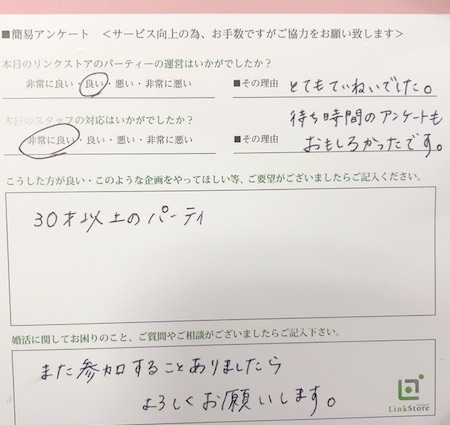 ■簡易アンケート　＜サービス向上の為、お手数ですがご協力をお願い致します＞
本日のリンクストアのパーティーの運営はいかがでしたか？
非常に良い・良い・悪い・非常に悪い　■その理由　とてもていねいでした。
本日のスタッフの対応はいかがでしたか？　待ち時間のアンケートも
非常に良い・良い・悪い・非常に悪い　■その理由　おもしろかったです。
こうした方が良い・このような企画をやってほしい等、ご要望がございましたらご記入ください。
30才以上のパーティ
婚活に関してお困りのこと、ご質問やご相談がございましたらご記入下さい。
また参加することありましたら
よろしくお願いします。
LinkStore